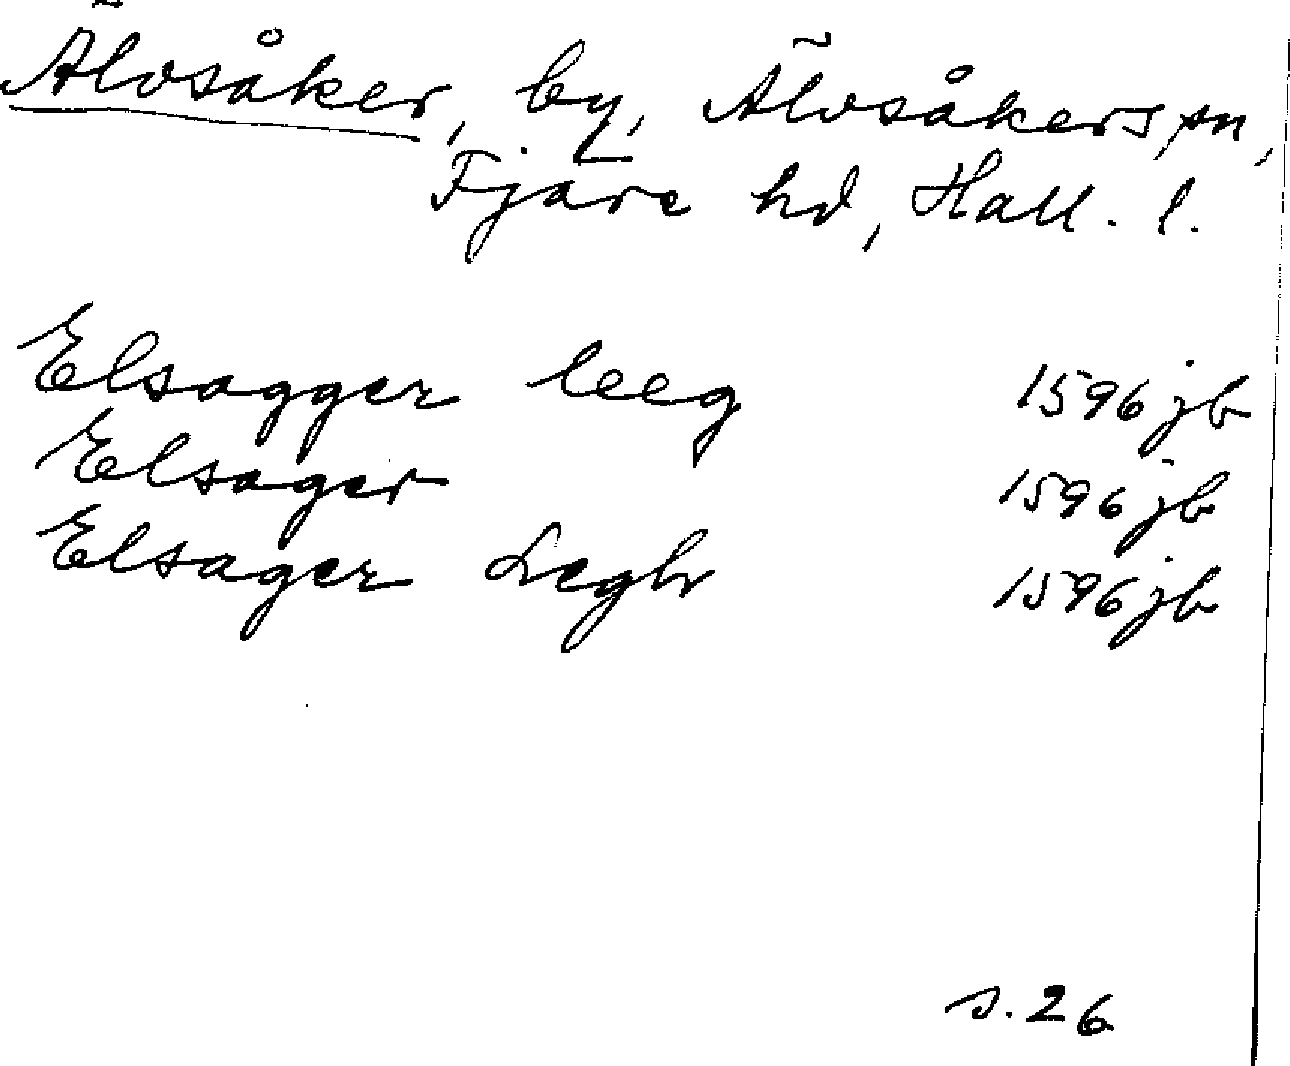 Älvsåker, by, Älvsåkers sn,
Fjäre hd, Hall. l.
Elsagger leeg 1596 jb
Elsager 1596 jb
Elsager Legh 1596 jb
s. 26